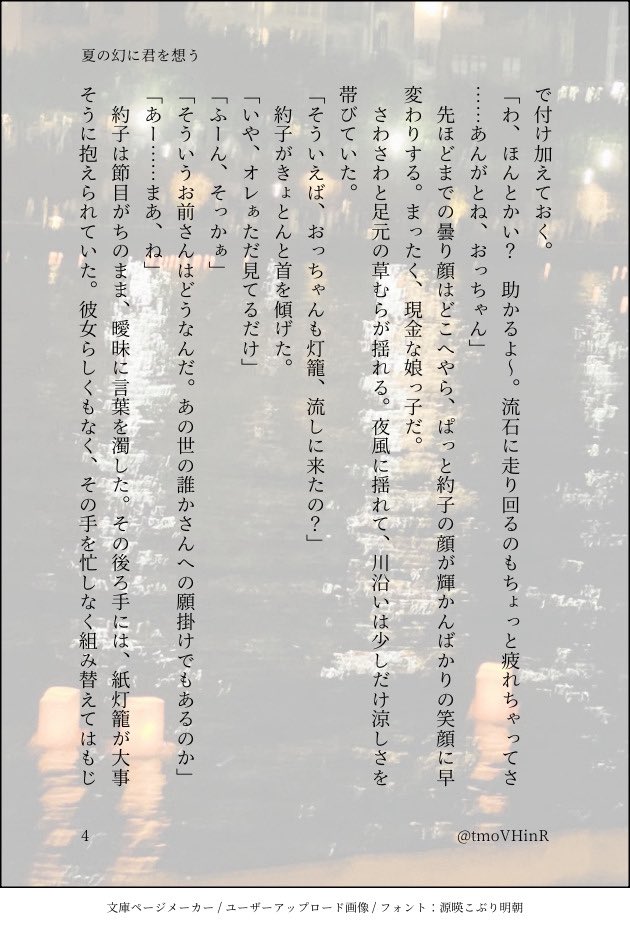 夏の幻に君を想う
で付け加えておく。
「わ、ほんとかい？　助かるよ～。流石に走り回るのもちょっと疲れちゃってさ
……あんがとね、おっちゃん」
　先ほどまでの曇り顔はどこへやら、ぱっと約子の顔が輝かんばかりの笑顔に早
変わりする。まったく、現金な娘っ子だ。
　さわさわと足元の草むらが揺れる。夜風に揺れて、川沿いは少しだけ涼しさを
帯びていた。
「そういえば、おっちゃんも灯籠、流しに来たの？」
　約子がきょとんと首を傾げた。
「いや、オレぁただ見てるだけ」
「ふーん、そっかぁ」
「そういうお前さんはどうなんだ。あの世の誰かさんへの願掛けでもあるのか」
「あー……まあ、ね」
　約子は節目がちのまま、曖昧に言葉を濁した。その後ろ手には、紙灯籠が大事
そうに抱えられていた。彼女らしくもなく、その手を忙しなく組み替えてはもじ
4
@tmoVHinR
文庫ページメーカー / ユーザーアップロード画像 / フォント：源暎こぶり明朝